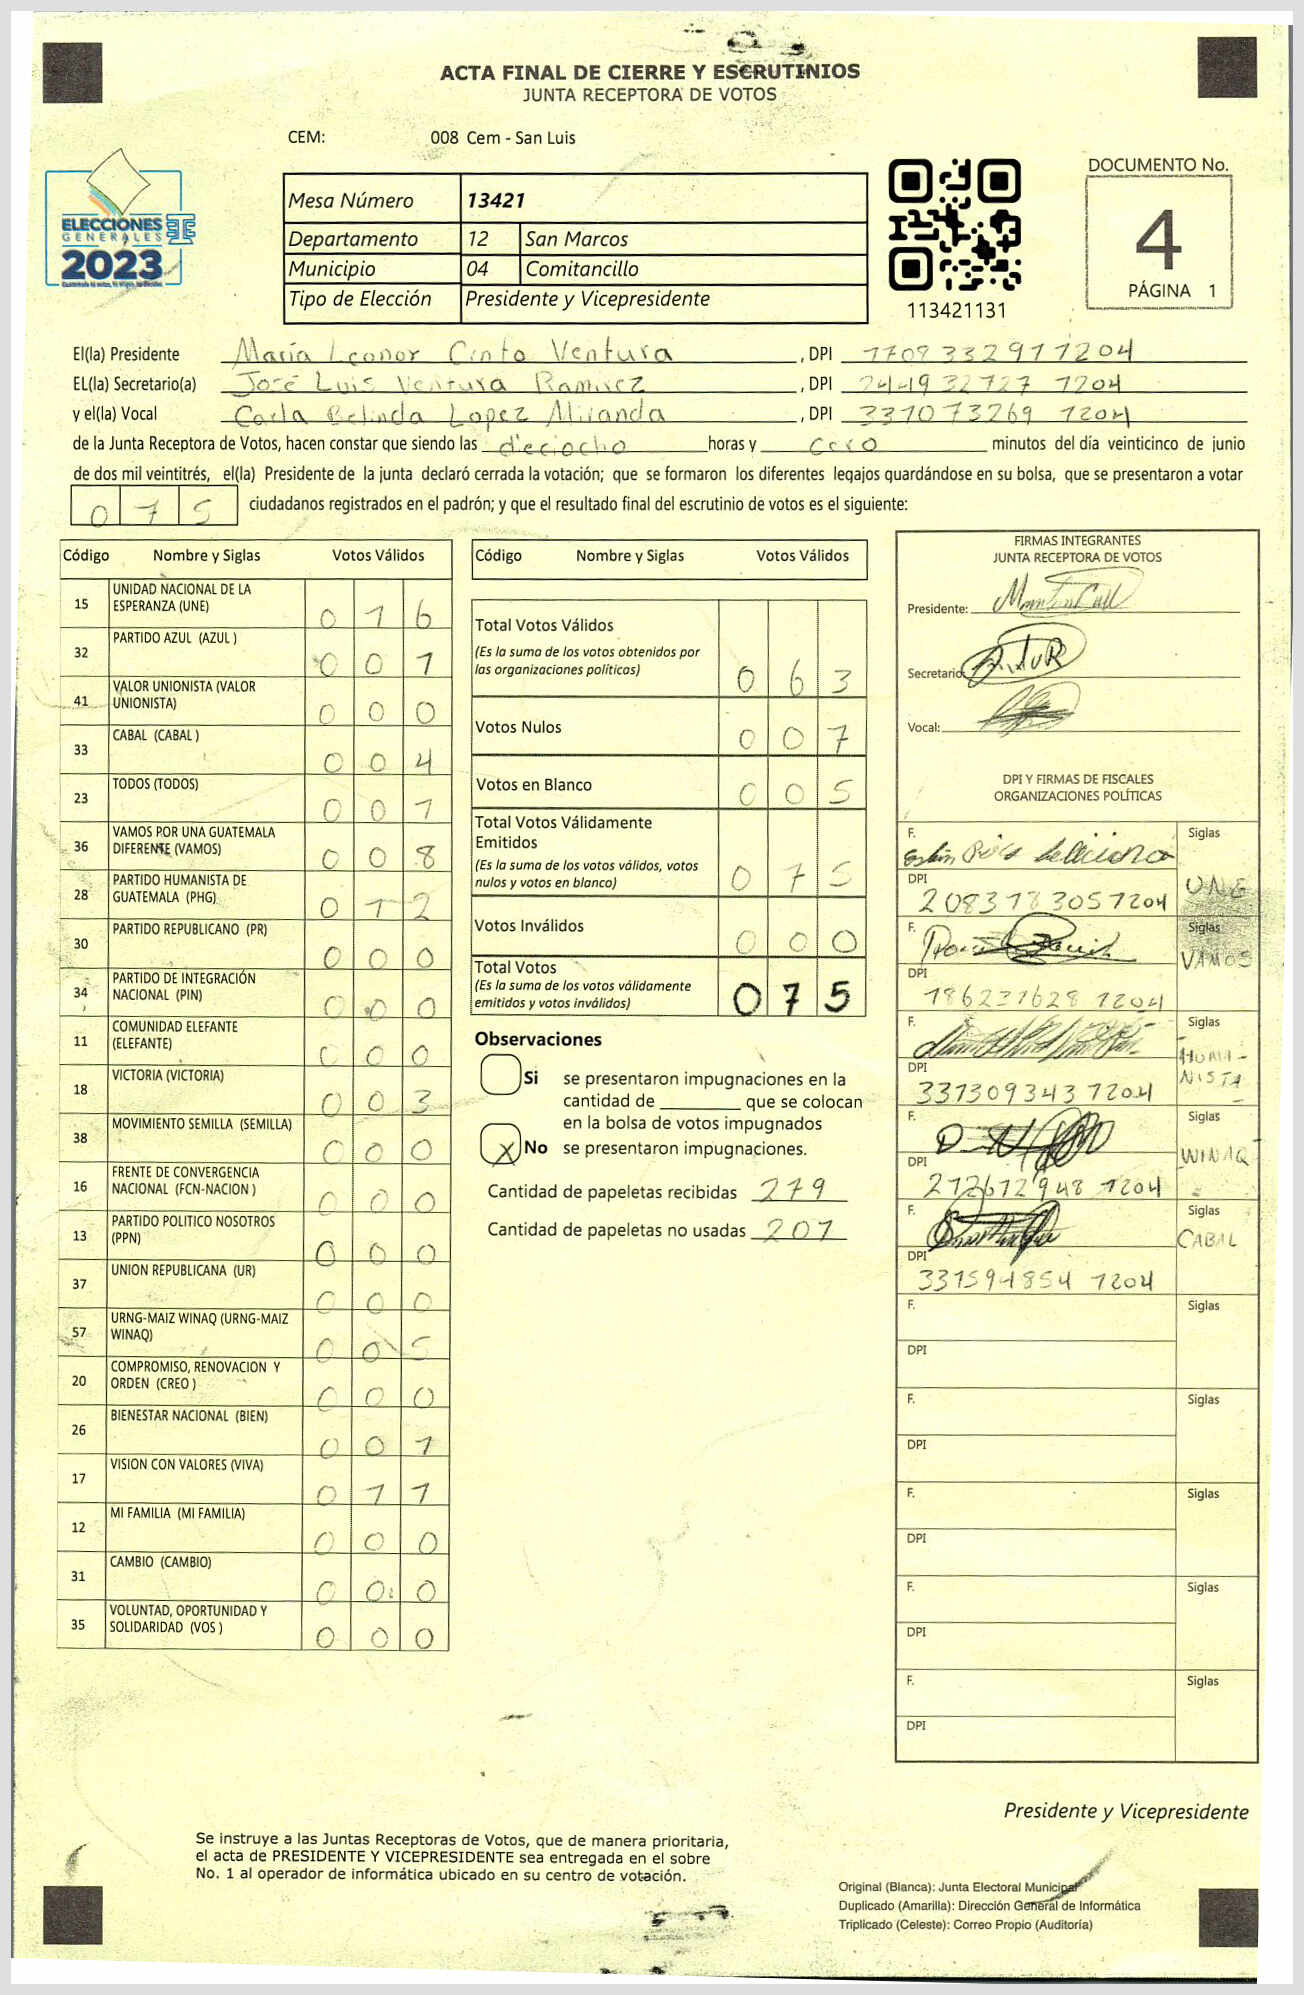 ACTA FINAL DE CIERRE Y ESCRUTINIOS
JUNTA RECEPTORA DE VOTOS
CEM: 008 Cem - San Luis
ELECCIONES
GENERALES
2023
Mesa Número 13421
Departamento 12 San Marcos
Municipio 04 Comitancillo
Tipo de Elección Presidente y Vicepresidente
113421131
DOCUMENTO No.
4
PÁGINA 1
El(la) Presidente María Leonor Cinto Ventura , DPI 1708332911204
EL(la) Secretario(a) José Luis Ventura Ramirez , DPI 244932727 1204
y el(la) Vocal Carla Belinda Lopez Miranda , DPI 331073269 1204
de la Junta Receptora de Votos, hacen constar que siendo las dieciocho horas y cero minutos del día veinticinco de junio
de dos mil veintitrés, el(la) Presidente de la junta declaró cerrada la votación; que se formaron los diferentes legajos guardándose en su bolsa, que se presentaron a votar
075 ciudadanos registrados en el padrón; y que el resultado final del escrutinio de votos es el siguiente:
Código Nombre y Siglas Votos Válidos
15 UNIDAD NACIONAL DE LA ESPERANZA (UNE) 016
32 PARTIDO AZUL (AZUL ) 001
41 VALOR UNIONISTA (VALOR UNIONISTA) 000
33 CABAL (CABAL ) 004
23 TODOS (TODOS) 001
36 VAMOS POR UNA GUATEMALA DIFERENTE (VAMOS) 008
28 PARTIDO HUMANISTA DE GUATEMALA (PHG) 012
30 PARTIDO REPUBLICANO (PR) 000
34 PARTIDO DE INTEGRACIÓN NACIONAL (PIN) 000
11 COMUNIDAD ELEFANTE (ELEFANTE) 000
18 VICTORIA (VICTORIA) 003
38 MOVIMIENTO SEMILLA (SEMILLA) 000
16 FRENTE DE CONVERGENCIA NACIONAL (FCN-NACION ) 000
13 PARTIDO POLITICO NOSOTROS (PPN) 000
37 UNION REPUBLICANA (UR) 000
57 URNG-MAIZ WINAQ (URNG-MAIZ WINAQ) 005
20 COMPROMISO, RENOVACION Y ORDEN (CREO ) 000
26 BIENESTAR NACIONAL (BIEN) 001
17 VISION CON VALORES (VIVA) 011
12 MI FAMILIA (MI FAMILIA) 000
31 CAMBIO (CAMBIO) 000
35 VOLUNTAD, OPORTUNIDAD Y SOLIDARIDAD (VOS ) 000
Código Nombre y Siglas Votos Válidos
Total Votos Válidos 063
(Es la suma de los votos obtenidos por
las organizaciones políticas)
Votos Nulos 007
Votos en Blanco 005
Total Votos Válidamente
Emitidos 075
(Es la suma de los votos válidos, votos
nulos y votos en blanco)
Votos Inválidos 000
Total Votos 075
(Es la suma de los votos válidamente
emitidos y votos inválidos)
Observaciones
Si se presentaron impugnaciones en la
cantidad de ________ que se colocan
en la bolsa de votos impugnados
X No se presentaron impugnaciones.
Cantidad de papeletas recibidas 279
Cantidad de papeletas no usadas 201
FIRMAS INTEGRANTES
JUNTA RECEPTORA DE VOTOS
Presidente:
Secretario:
Vocal:
DPI Y FIRMAS DE FISCALES
ORGANIZACIONES POLÍTICAS
F. Siglas
DPI UNE
2083183051204
F. Siglas
DPI VAMOS
186231628 1204
F. Siglas
DPI HUMA-
331309343 1204 NISTA
F. Siglas
DPI WINAQ
212612948 1204
F. Siglas
DPI CABAL
331594854 1204
F. Siglas
DPI
F. Siglas
DPI
F. Siglas
DPI
F. Siglas
DPI
F. Siglas
DPI
Presidente y Vicepresidente
Se instruye a las Juntas Receptoras de Votos, que de manera prioritaria,
el acta de PRESIDENTE Y VICEPRESIDENTE sea entregada en el sobre
No. 1 al operador de informática ubicado en su centro de votación.
Original (Blanca): Junta Electoral Municipal
Duplicado (Amarilla): Dirección General de Informática
Triplicado (Celeste): Correo Propio (Auditoría)